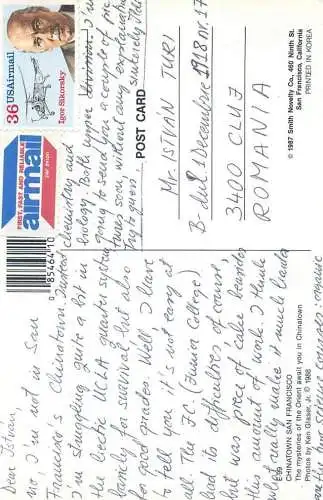 Dear Istvan
I'm not in San
Francisco's Chinatown. Instead
I'm struggling quite a bit in
the hectic UCLA quarter system
family for survival but also
for good grades. Well I have
to tell you it's not easy at
all. The J.C. (Junior College)
had its difficulties of course
but was piece of cake besides
this amount of work. I think
what really makes it much harder
chemistry and
biology. Both under
Going to send you a couple of pic-
tures soon without any explanation
Try to guess.
Sincerely
E-99
CHINATOWN SAN FRANCISCO
The mysteries of the Orient await you in Chinatown
Photos by Ken Glaser, Jr. © 1988
0 85464 10
POST CARD
36 USAirmail
Igor Sikorsky
FIRST, FAST AND RELIABLE
airmail
Mr. ISTVÁN TURI
B-dul. 1 Decembrie 1918 nr. 17
3400 CLUJ
ROMANIA
© 1987 Smith Novelty Co., 460 Ninth St.
San Francisco, California
PRINTED IN KOREA